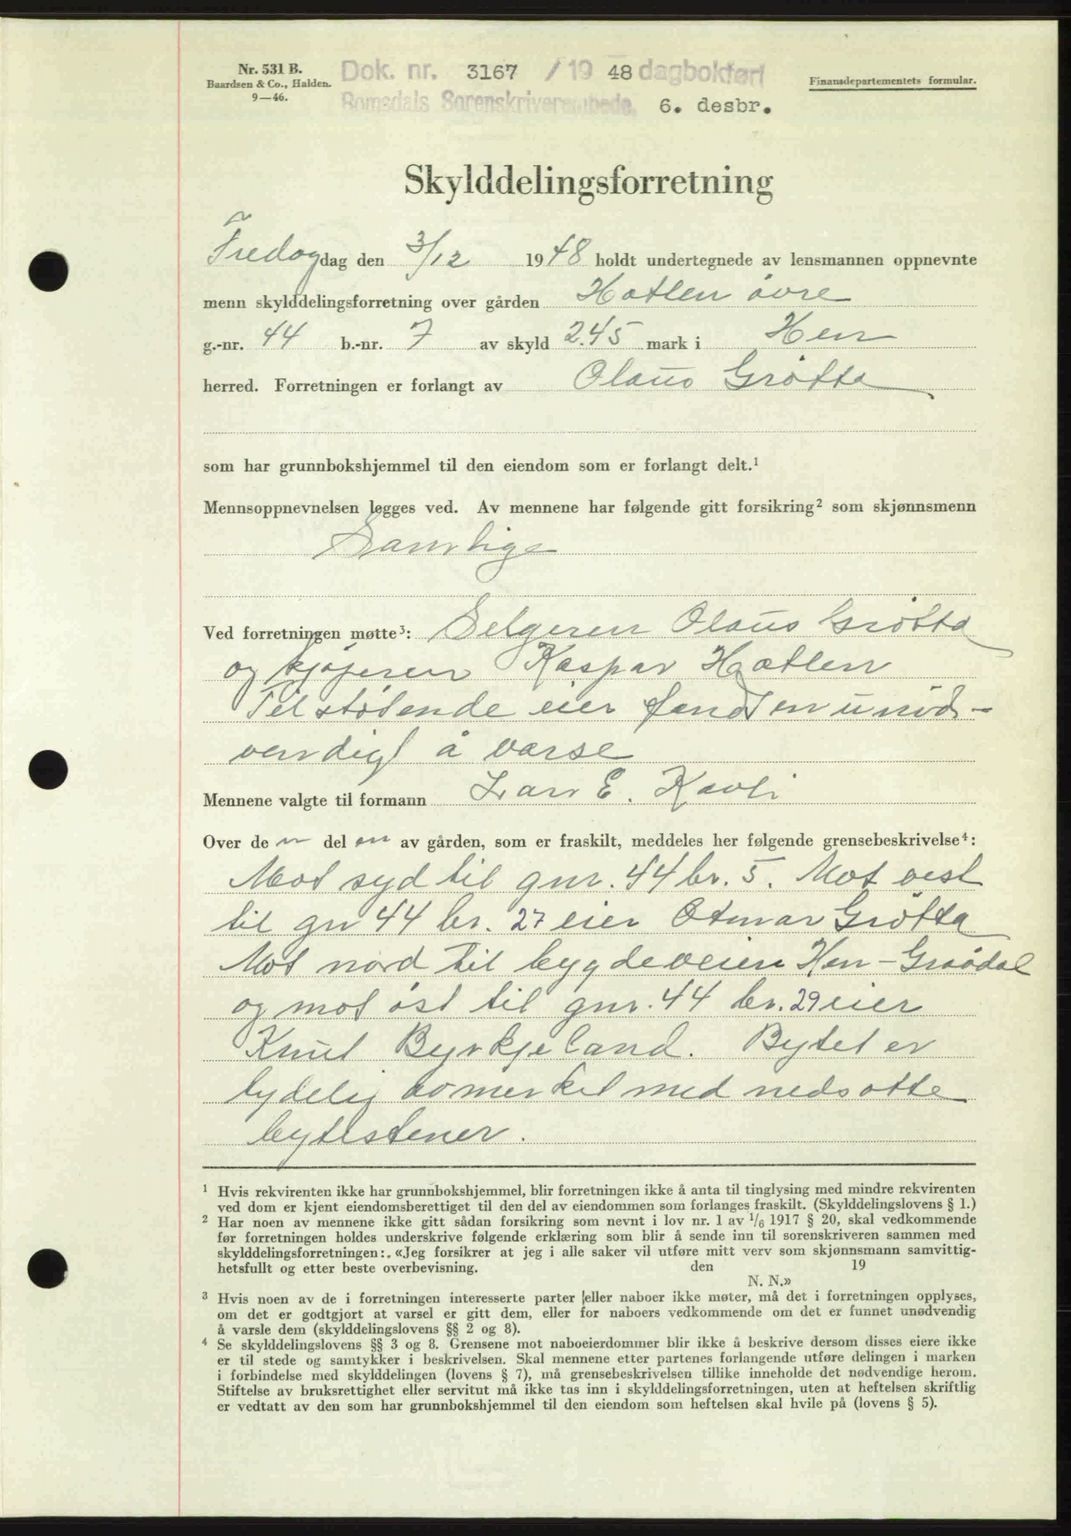 Nr. 531 B.
Baardsen & Co., Halden.
9—46.
Dok. nr. 3167 / 19 48 dagbokført
Romsdals Sorenskriverembede, 6. desbr.
Finansdepartementets formular.
Skylddelingsforretning
Fredag dag den 3/12 1948 holdt undertegnede av lensmannen oppnevnte
menn skylddelingsforretning over gården Hatlen øvre
g.-nr. 44 b.-nr. 7 av skyld 2.45 mark i Hen
herred. Forretningen er forlangt av Olaus Grøtta
som har grunnbokshjemmel til den eiendom som er forlangt delt.¹
Mennsoppnevnelsen legges ved. Av mennene har følgende gitt forsikring² som skjønnsmenn
Samtlige
Ved forretningen møtte³: Selgeren Olaus Grøtta
og kjøperen Kaspar Hatlen
Tilstøtende eier fandt en unød-
vendigt å varse
Mennene valgte til formann Lars E. Kavli
Over de n del en av gården, som er fraskilt, meddeles her følgende grensebeskrivelse⁴:
Mot syd til gnr. 44 br. 5. Mot vest
til gn 44 br. 27 eier Otmar Grøtta
Mot nord til bygdeveien Hen - Grødal
og mot øst til gnr. 44 br. 29 eier
Knut Byrkjeland. Bytet er
tydelig avmerket med nedsatte
bytestener.
¹ Hvis rekvirenten ikke har grunnbokshjemmel, blir forretningen ikke å anta til tinglysing med mindre rekvirenten
ved dom er kjent eiendomsberettiget til den del av eiendommen som forlanges fraskilt. (Skylddelingslovens § 1.)
² Har noen av mennene ikke gitt sådan forsikring som nevnt i lov nr. 1 av 1/6 1917 § 20, skal vedkommende
før forretningen holdes underskrive følgende erklæring som blir å sende inn til sorenskriveren sammen med
skylddelingsforretningen: «Jeg forsikrer at jeg i alle saker vil utføre mitt verv som skjønnsmann samvittig-
hetsfullt og etter beste overbevisning. den 19
N. N.»
³ Hvis noen av de i forretningen interesserte parter eller naboer ikke møter, må det i forretningen opplyses,
om det er godtgjort at varsel er gitt dem, eller for naboers vedkommende om det er funnet unødvendig
å varsle dem (skylddelingslovens §§ 2 og 8).
⁴ Se skylddelingslovens §§ 3 og 8. Grensene mot naboeierdommer blir ikke å beskrive dersom disses eiere ikke
er til stede og samtykker i beskrivelsen. Skal mennene etter partenes forlangende utføre delingen i marken
i forbindelse med skylddelingen (lovens § 7), må grensebeskrivelsen tillike inneholde det nødvendige herom.
Stiftelse av bruksrettighet eller servitut må ikke tas inn i skylddelingsforretningen, uten at heftelsen skriftlig
er vedtatt av den som har grunnbokshjemmel til den eiendom som heftelsen skal hvile på (lovens § 5).